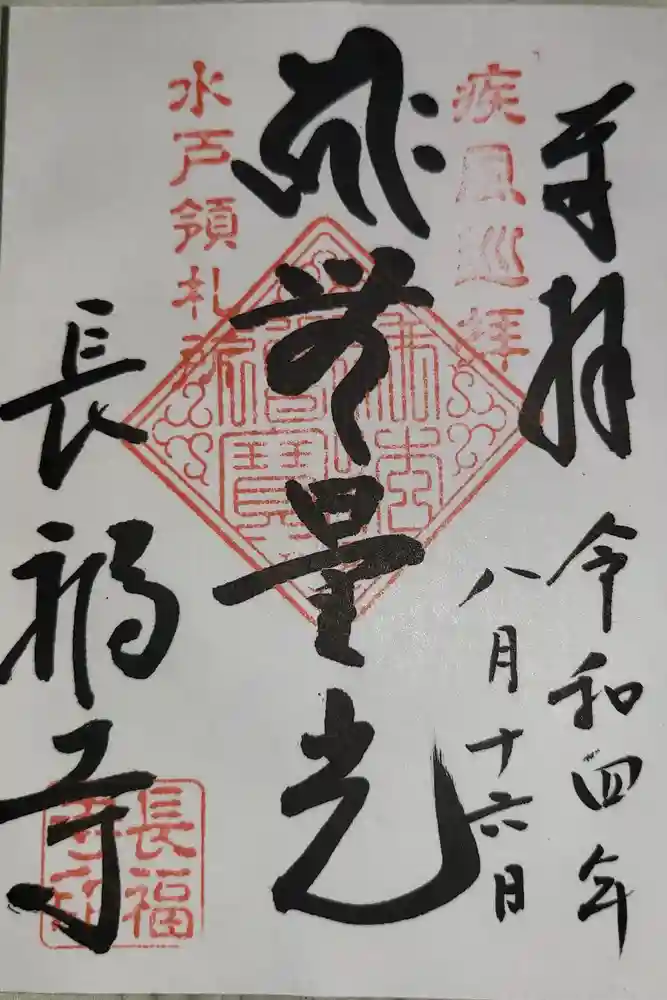 奉拝
令和四年
八月十六日
疾風巡拝
無量光
水戸領札所
長福寺
長福